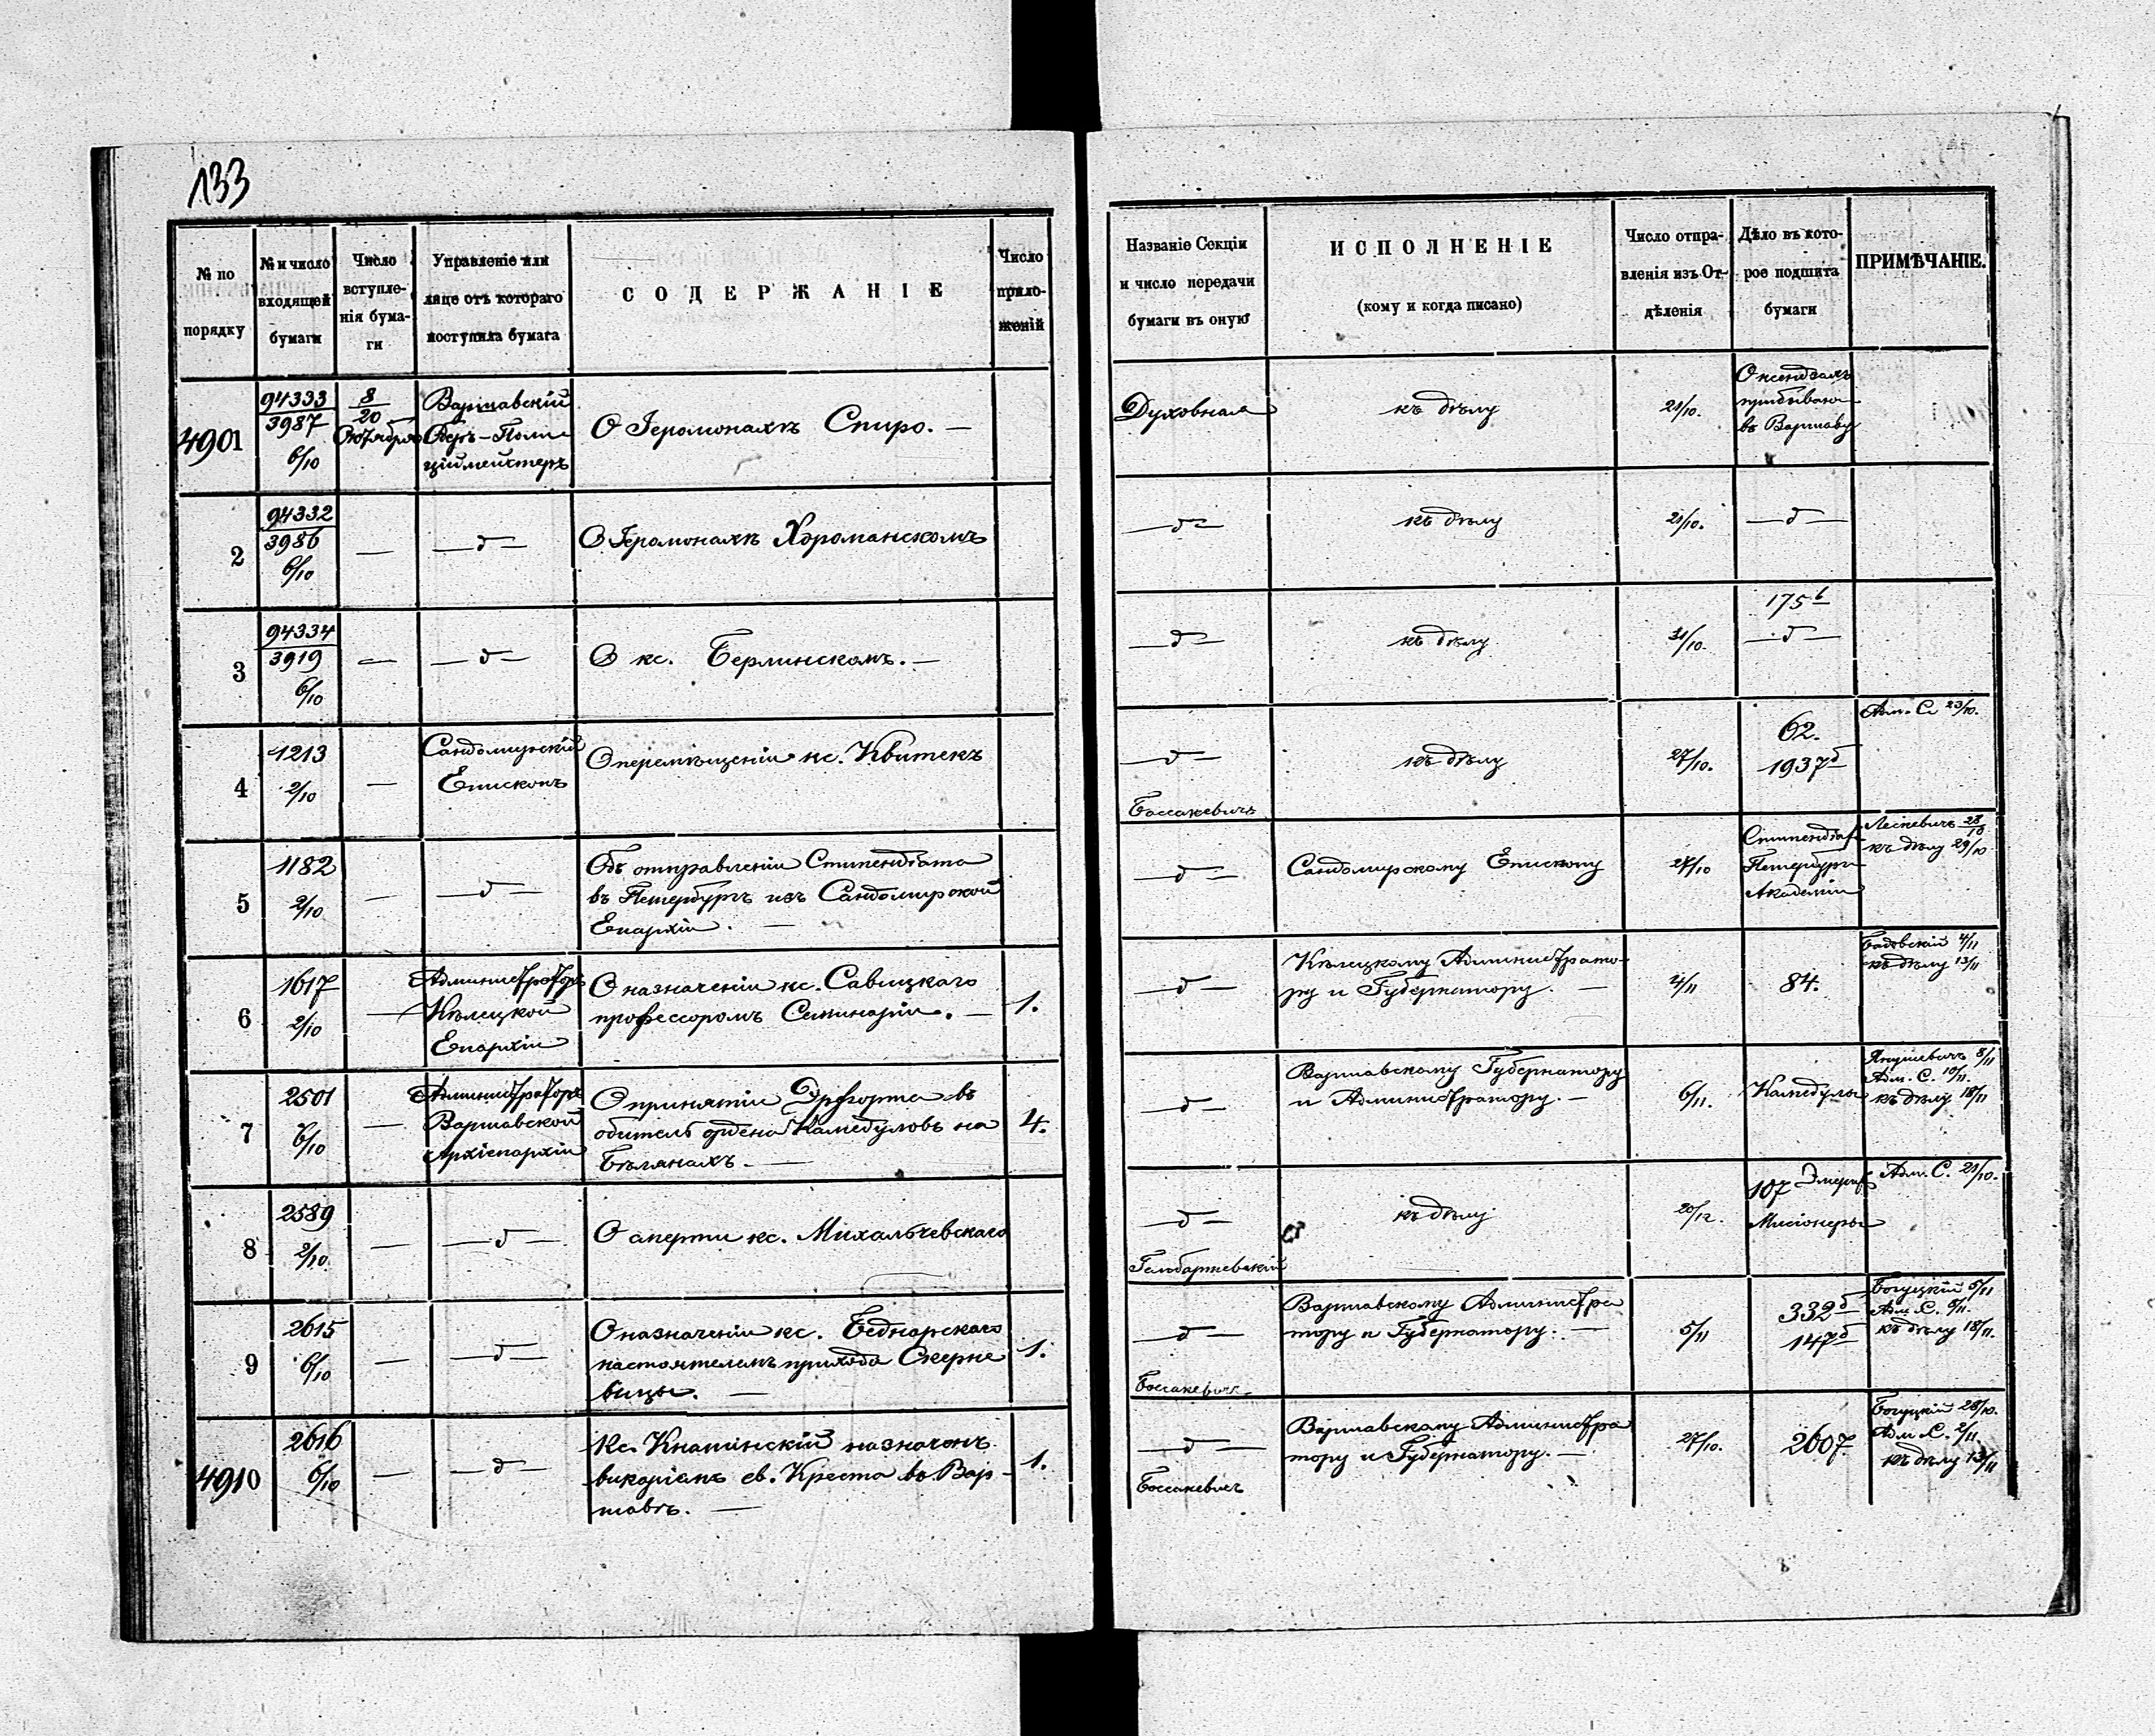 133
№ по порядку
№ и число входящей бумаги
Число вступленія бумаги
Управленіе или лице отъ котораго поступила бумага
СОДЕРЖАНІЕ
Число приложеній
Названіе Секціи и число передачи бумаги въ оную
ИСПОЛНЕНІЕ
(кому и когда писано)
Число отправленія изъ Отдѣленія
Дѣло въ которое подшита бумаги
ПРИМѢЧАНІЕ.
4901
94333
3987
6/10
8
20
Октября
Варшавскій
Оберъ-Поли
ціймейстеръ
О Іеромонахѣ Спиро. —
Духовная
къ дѣлу
21/10.
О ксендзахъ
въ Варшаву
2
94332
3986
6/10
—
— д —
О Іеромонахѣ Хороманскомъ
— д —
къ дѣлу
21/10.
— д —
3
94334
3919
6/10
—
— д —
О кс. Берлинскомъ. —
— д —
къ дѣлу
31/10.
175 б
— д —
4
1213
2/10
—
Сандомирскій
Епископъ
О перемѣщеніи кс. Квитекъ
— д —
Боссакевичъ
къ дѣлу
27/10.
62.
1937 б
Адм. С. 23/10.
5
1182
2/10
—
— д —
Объ отправленіи Стипендіата
въ Петербургъ изъ Сандомирской
Епархіи. —
— д —
Сандомирскому Епископу
27/10
Петербург
Академіи
28/10
къ дѣлу 29/10
6
1617
2/10
—
Администраторъ
Кѣлецкой
Епархіи
О назначеніи кс. Савицкаго
профессоромъ Семинаріи. —
1.
— д —
Кѣлецкому Администрато-
ру и Губернатору. —
2/11
84.
4/11
къ дѣлу 13/11
7
2501
6/10
—
Администраторъ
Варшавской
Архіепархіи
О принятіи Эрфорта въ
обитель ордена Камедуловъ на
Бѣлянахъ. —
4.
— д —
Варшавскому Губернатору
и Администратору. —
6/11.
Камедулы
Янушевичъ 8/11
Адм. С. 10/11.
къ дѣлу 18/11
8
2589
2/10.
—
— д —
О смерти кс. Михальчевскаго
— д —
къ дѣлу
20/12.
107 Эмерит
Мисіонеры
Адм. С. 21/10.
9
2615
6/10
—
— д —
О назначеніи кс. Беднарскаго
настоятелемъ прихода Скерне
вицы. —
1.
— д —
Боссакевичъ
Варшавскому Администра
тору и Губернатору. —
5/11
332 б
147 б
Богуцкій 6/11
Адм. С. 8/11.
къ дѣлу 18/11.
4910
2616
6/10
—
— д —
Кс. Кнапинскій назначенъ
викаріемъ св. Креста въ Вар-
шавѣ. —
1.
— д —
Боссакевичъ
Варшавскому Администра
тору и Губернатору. —
27/10.
2607.
Богуцкій 28/10.
Адм. С. 2/11
къ дѣлу 13/11